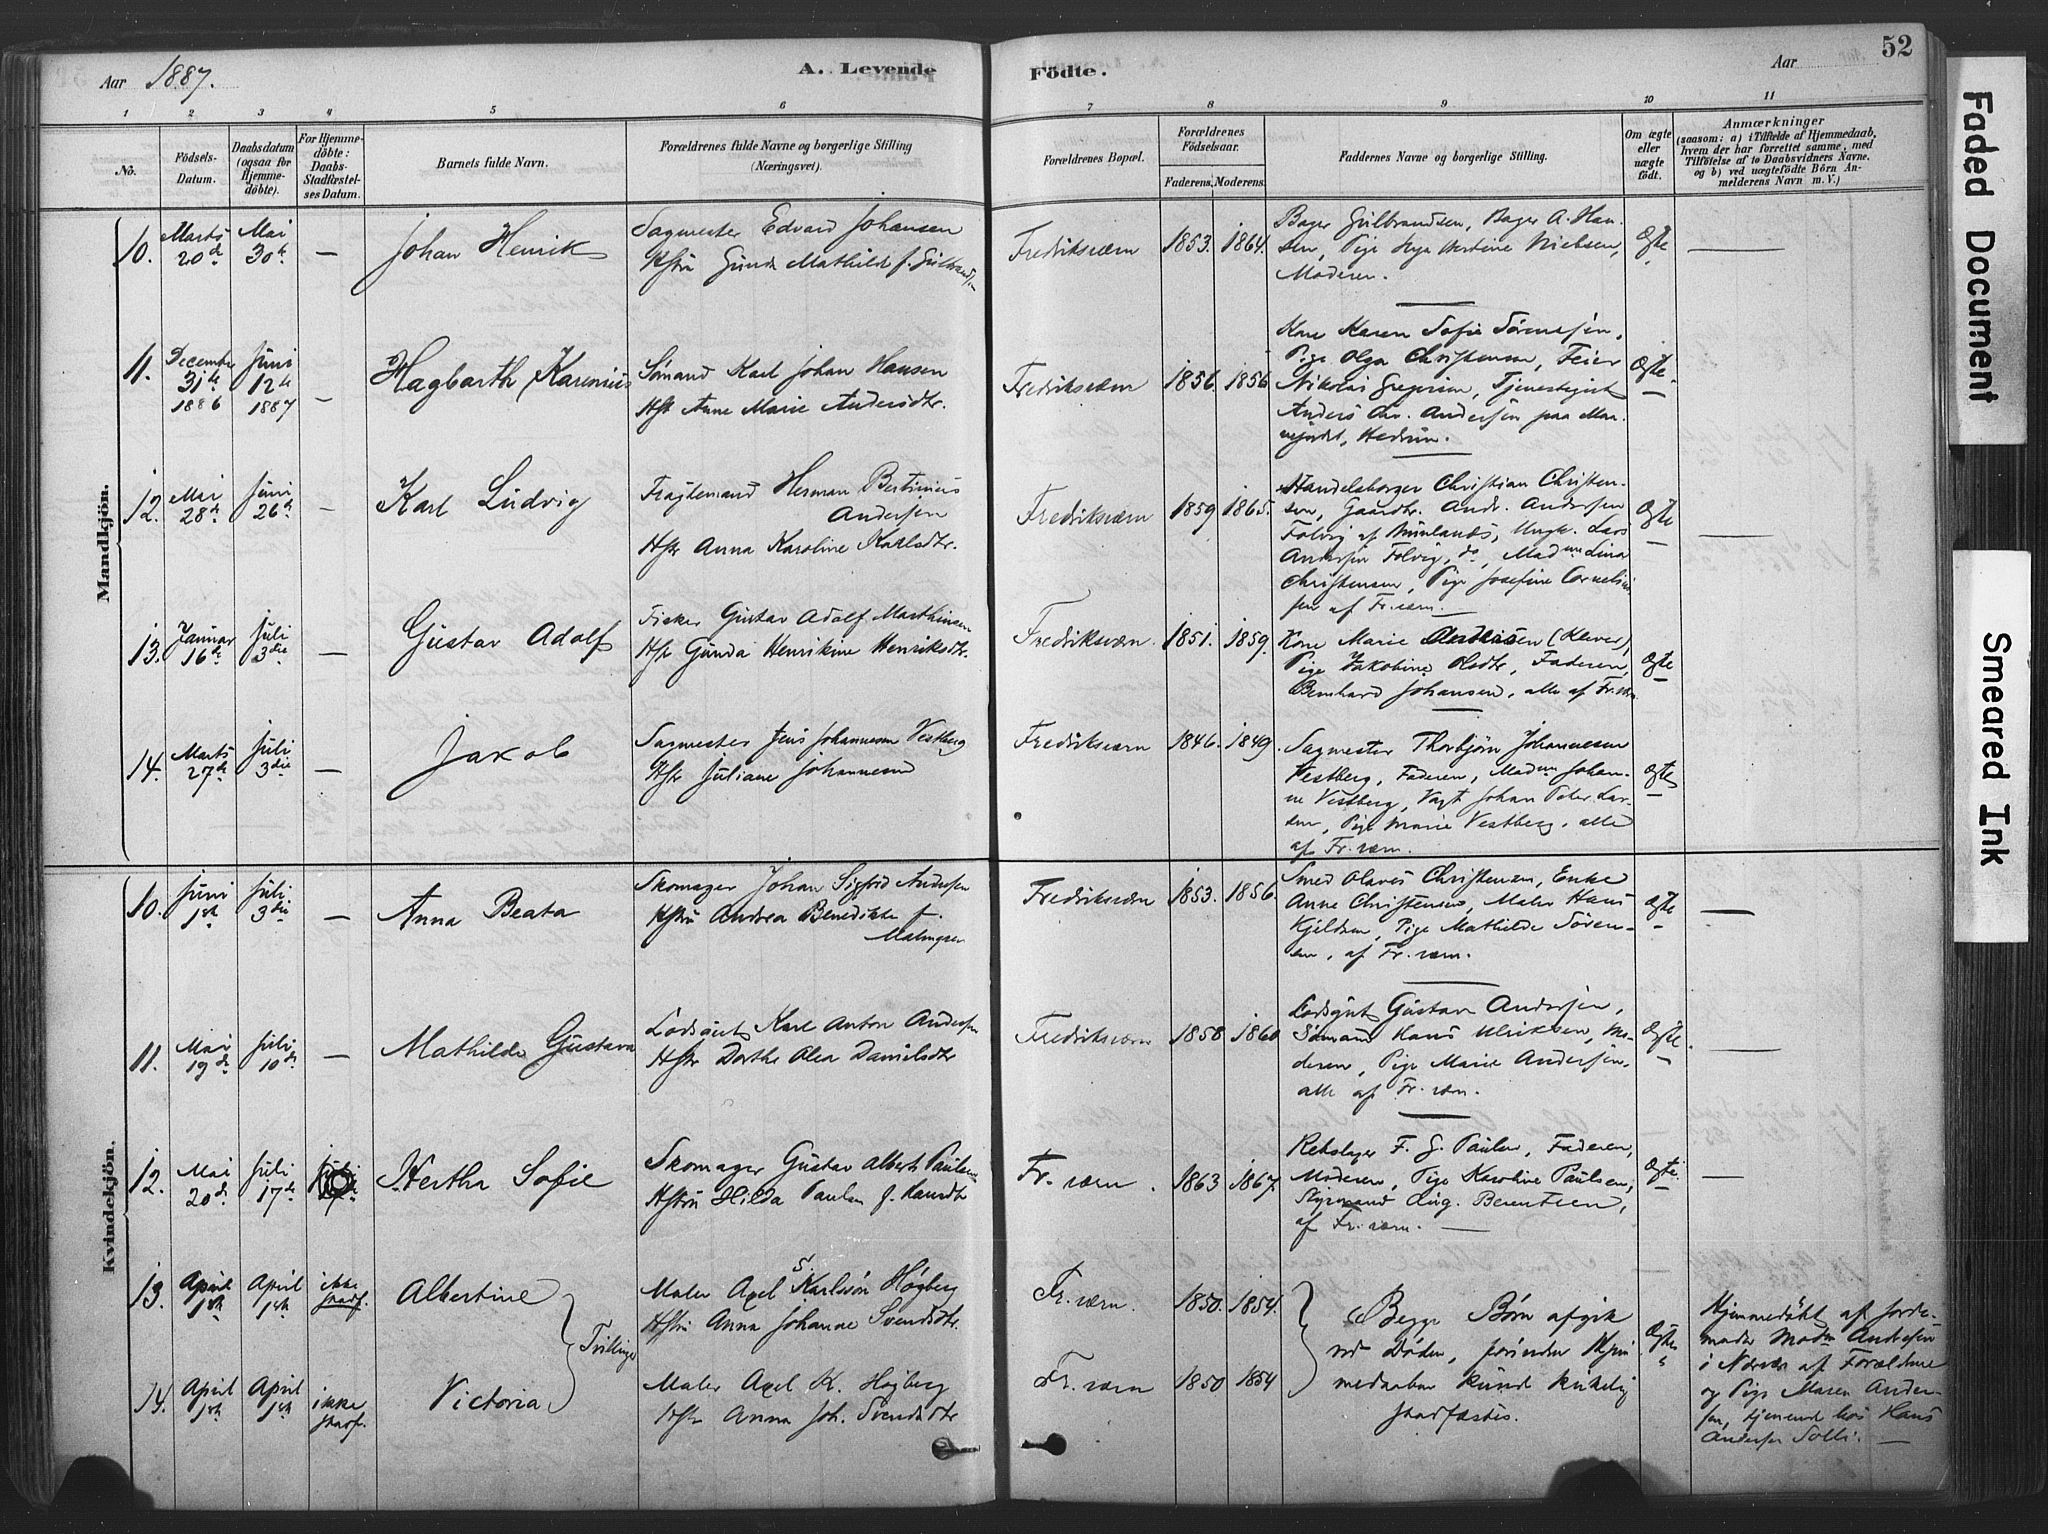 Aar 1887.
A. Levende
Fødte.
Aar
52
1 2 3 4 5 6 7 8 9 10 11
No.
Fødsels-
Datum.
Daabsdatum
(ogsaa for
Hjemme-
døbte).
For Hjemme-
døbte:
Daabs-
Stadfæstel-
ses Datum.
Barnets fulde Navn.
Forældrenes fulde Navne og borgerlige Stilling
(Næringsvei).
Forældrenes Bopæl.
Forældrenes
Fødselsaar.
Faderens. Moderens.
Faddernes Navne og borgerlige Stilling.
Om ægte
eller
uægte
født.
Anmærkninger
(saasom: a) i Tilfælde af Hjemmedaab,
hvem der har forrettet samme, med
Tilføielse af to Daabsvidners Navne,
og b) ved uægtefødte Børn An-
melderens Navn m. V.)
Mandkjön.
10. Marts 20de
Mai 30te
—
Johan Henrik
Sagmester Edvard Johansen
Hstru Gunda Mathilde f. Gulbrands.
Fredriksværn
1853. 1864.
Bager Gulbrandsen, Bager A. Han-
sen, Pige Nielsen,
Moderen.
Ægte
—
11. December 31te 1886
Juni 12te 1887
—
Hagbarth Karenius
Sömand Karl Johan Hansen
Hst Anne Marie Andersdtr.
Fredriksværn
1856. 1856
Kone Karen Sofie Sörensen,
Pige Olga Christensen, Feier
Nikolai Gregersen, Tjenestegut
Anders Chr. Andersen paa
Hedrum.
Ægte
12. Mai 28de
Juni 26de
—
Karl Ludvig
Fragtemand Herman Bertinius
Andersen
Hstr Anna Karoline Karlsdtr.
Fredriksværn
1859 1865.
Handelsborger Christian Christen-
sen, Gaardbr. Andr. Andersen
Folvig af Brunlands, Ungk. Lars
Andersen Folvig, do, Madmm Lina
Christensen, Pige Josefine Cornelius-
sen af Fr.værn.
Ægte
—
13. Januar 16de
Juli 3die
—
Gustav Adolf
Fisker Gustav Adolf Marthinsen
Hstr Gunda Henrikine Henriksdtr.
Fredriksværn.
1851. 1859.
Kone Marie Andersen (Klever),
Pige Jakobine Olsdtr, Faderen,
Bernhard Johansen, alle af Fr.værn.
Ægte
14. Marts 27de
Juli 3die
—
Jakob
Sagmester Jens Johannesen Vestberg
Hstr Juliane Johannesen
Fredriksværn
1846. 1849.
Sagmester Thorbjörn Johannesen
Vestberg, Faderen, Madmm Johan-
ne Vestberg, Vagt Johan Peter Lar-
sen, Pige Marie Vestberg, alle
af Fr.værn.
Ægte
Kvindekjön.
10. Juni 1ste
Juli 3die
—
Anna Beata
Skomager Johan Sigfrid Andersen
Hstru Andrea Benedikte f.
Malmgren
Fredriksværn
1853. 1856.
Smed Olaves Christensen, Enke
Anne Christensen, Maler Hans
Kjeldsen, Pige Mathilde Sören-
sen, af Fr.værn.
Ægte
—
11. Mai 19de
Juli 10de
—
Mathilde Gustava
Lodsgut Karl Anton Andersen
Hstr Dorthe Olea Danielsdtr
Fredriksværn
1858 1860
Lodsgut Gustav Andersen,
Sömand Hans Ulriksen, Mo-
deren, Pige Marie Andersen,
alle af Fr.værn.
Ægte.
—
12. Mai 20de
Juli 17de
Hertha Sofie
Skomager Gustav Albert Paulsen
Hstru Hilda Paulsen f. Hansdtr
Fr.værn.
1863 1867.
Rebslager F. G. Paulsen, Faderen,
Moderen, Pige Karoline Paulsen,
Styrmand Aug. Berentsen,
af Fr.værn.
Ægte
—
13. April 1ste
April 1ste
ikke
stadf.
Albertine
Maler Axel S. Karlsson Högberg
Hstru Anna Johanne Svendsdtr.
Fr.værn.
1850. 1854.
Tvillinger
Begge Börn afgik
ved Döden, forinden Hjem
medaaben kunde kirkelig
stadfæstes.
Ægte
Hjemmedöbt af Jorde-
moder Madm Andersen
i Nærvær af Forældrene
og Pige Maren Ander-
sen, tjenende hos Hans
Andersen Solli. —
14. April 1ste
April 1ste
ikke
stadf.
Victoria
Maler Axel K. Högberg
Hstr Anna Joh. Svendsdtr
Fr.værn
1850 1854
"
Faded Document
Smeared Ink